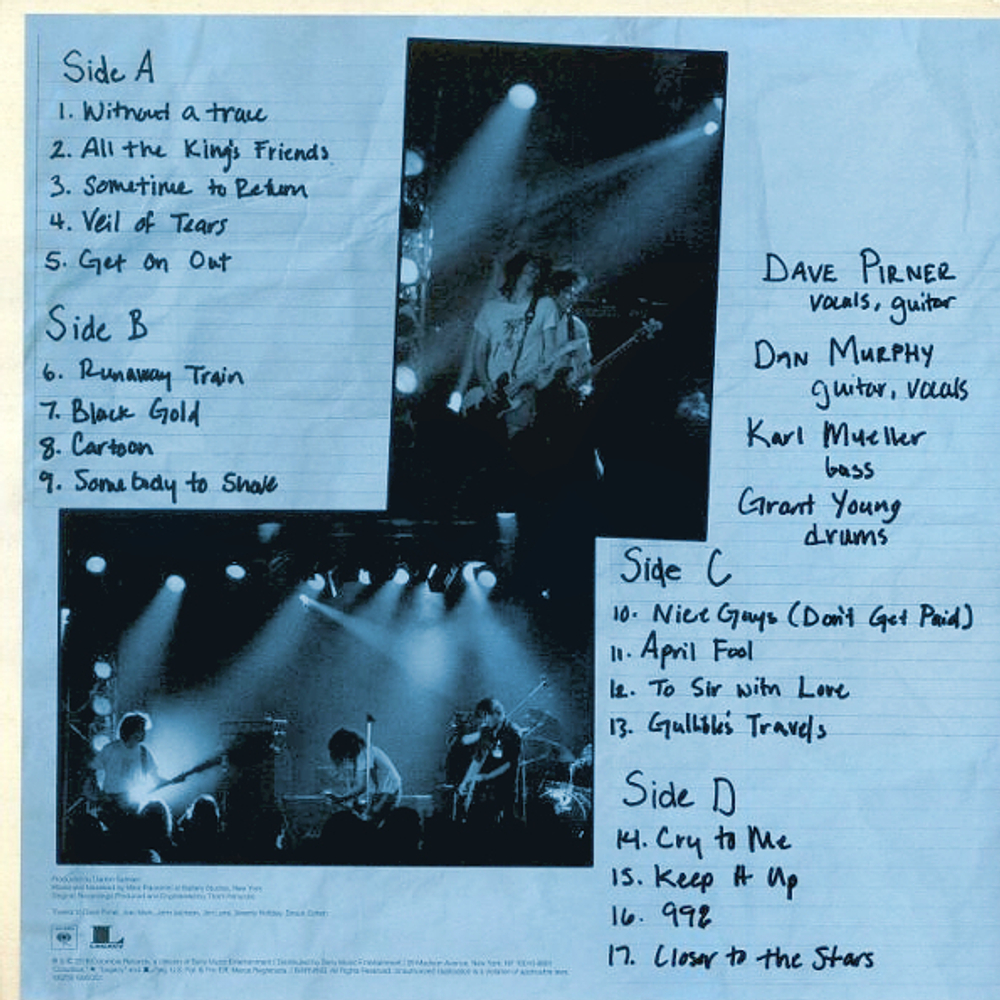 Side A
1. Without a trace
2. All the King's Friends
3. Sometime to Return
4. Veil of Tears
5. Get on Out
Side B
6. Runaway Train
7. Black Gold
8. Cartoon
9. Somebody to Shove
DAVE PIRNER
vocals, guitar
DAN MURPHY
guitar, vocals
Karl Mueller
bass
Grant Young
drums
Side C
10. Nice Guys (Don't Get Paid)
11. April Fool
12. To Sir with Love
13. Gullible's Travels
Side D
14. Cry to Me
15. Keep It Up
16. 99%
17. Closer to the Stars
LEGACY